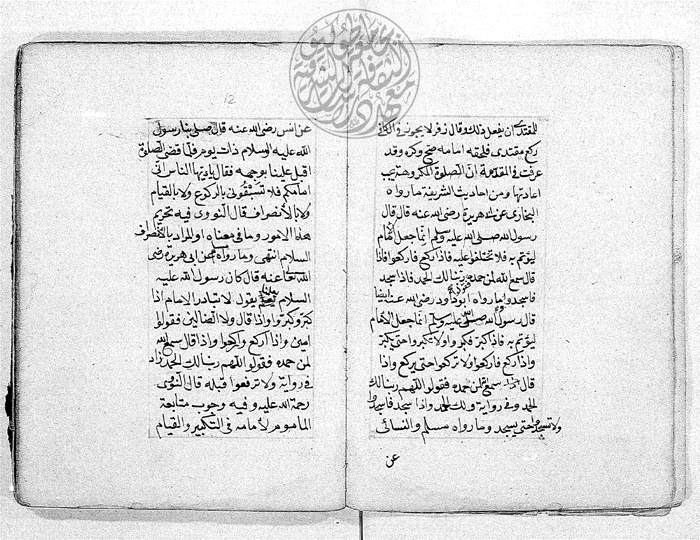 للمقتدى ان يفعل ذلك وقال زفر لا يجوز وفى الكافى
ركع مقتدى فلحقه امامه صح وكره وقد
عرفت فى المقدمة ان الصلوة المكروهة يجب
اعادتها ومن احاديث الشريفة ما رواه
البخارى عن ابى هريرة رضى الله عنه قال قال
رسول الله صلى الله عليه وسلم انما جعل الامام
ليؤتم به فلا تختلفوا عليه فاذا ركع فاركعوا واذا
قال سمع الله لمن حمده ربنا لك الحمد فاذا سجد
فاسجدوا وما رواه ابوداود رضى الله عنه ايضا
قال رسول الله صلى الله عليه وسلم انما جعل الامام
ليؤتم به فاذا كبر فكبروا ولا تكبروا حتى يكبر
واذا ركع فاركعوا ولا تركعوا حتى يركع واذا
قال سمع الله لمن حمده فقولوا اللهم ربنا لك
الحمد وفى رواية ولك الحمد واذا سجد فاسجدوا
ولا تسجدوا حتى يسجد وما رواه مسلم والنسائى
عن
12
عن انس رضى الله عنه قال صلى بنا رسول
الله عليه السلام ذات يوم فلما قضى الصلوة
اقبل علينا بوجهه فقال يا ايها الناس انى
امامكم فلا تسبقونى بالركوع ولا بالقيام
ولا بالانصراف قال النووى فيه تحريم
هذه الامور وما فى معناها والمراد بالانصراف
السلام انتهى وما رواه عن ابى هريرة رضى
الله تعا عنه قال كان رسول الله عليه
السلام يقول لا تبادر الامام اذا
كبر وكبروا واذا قال ولا الضالين فقولوا
امين واذا ركع واركعوا واذا قال سمع الله
لمن حمده فقولوا اللهم ربنا لك الحمد زاد
فى رواية ولا ترفعوا قبله قال النووى
رحمة الله عليه وفيه وجوب متابعة
الماموم لامامه فى التكبير والقيام